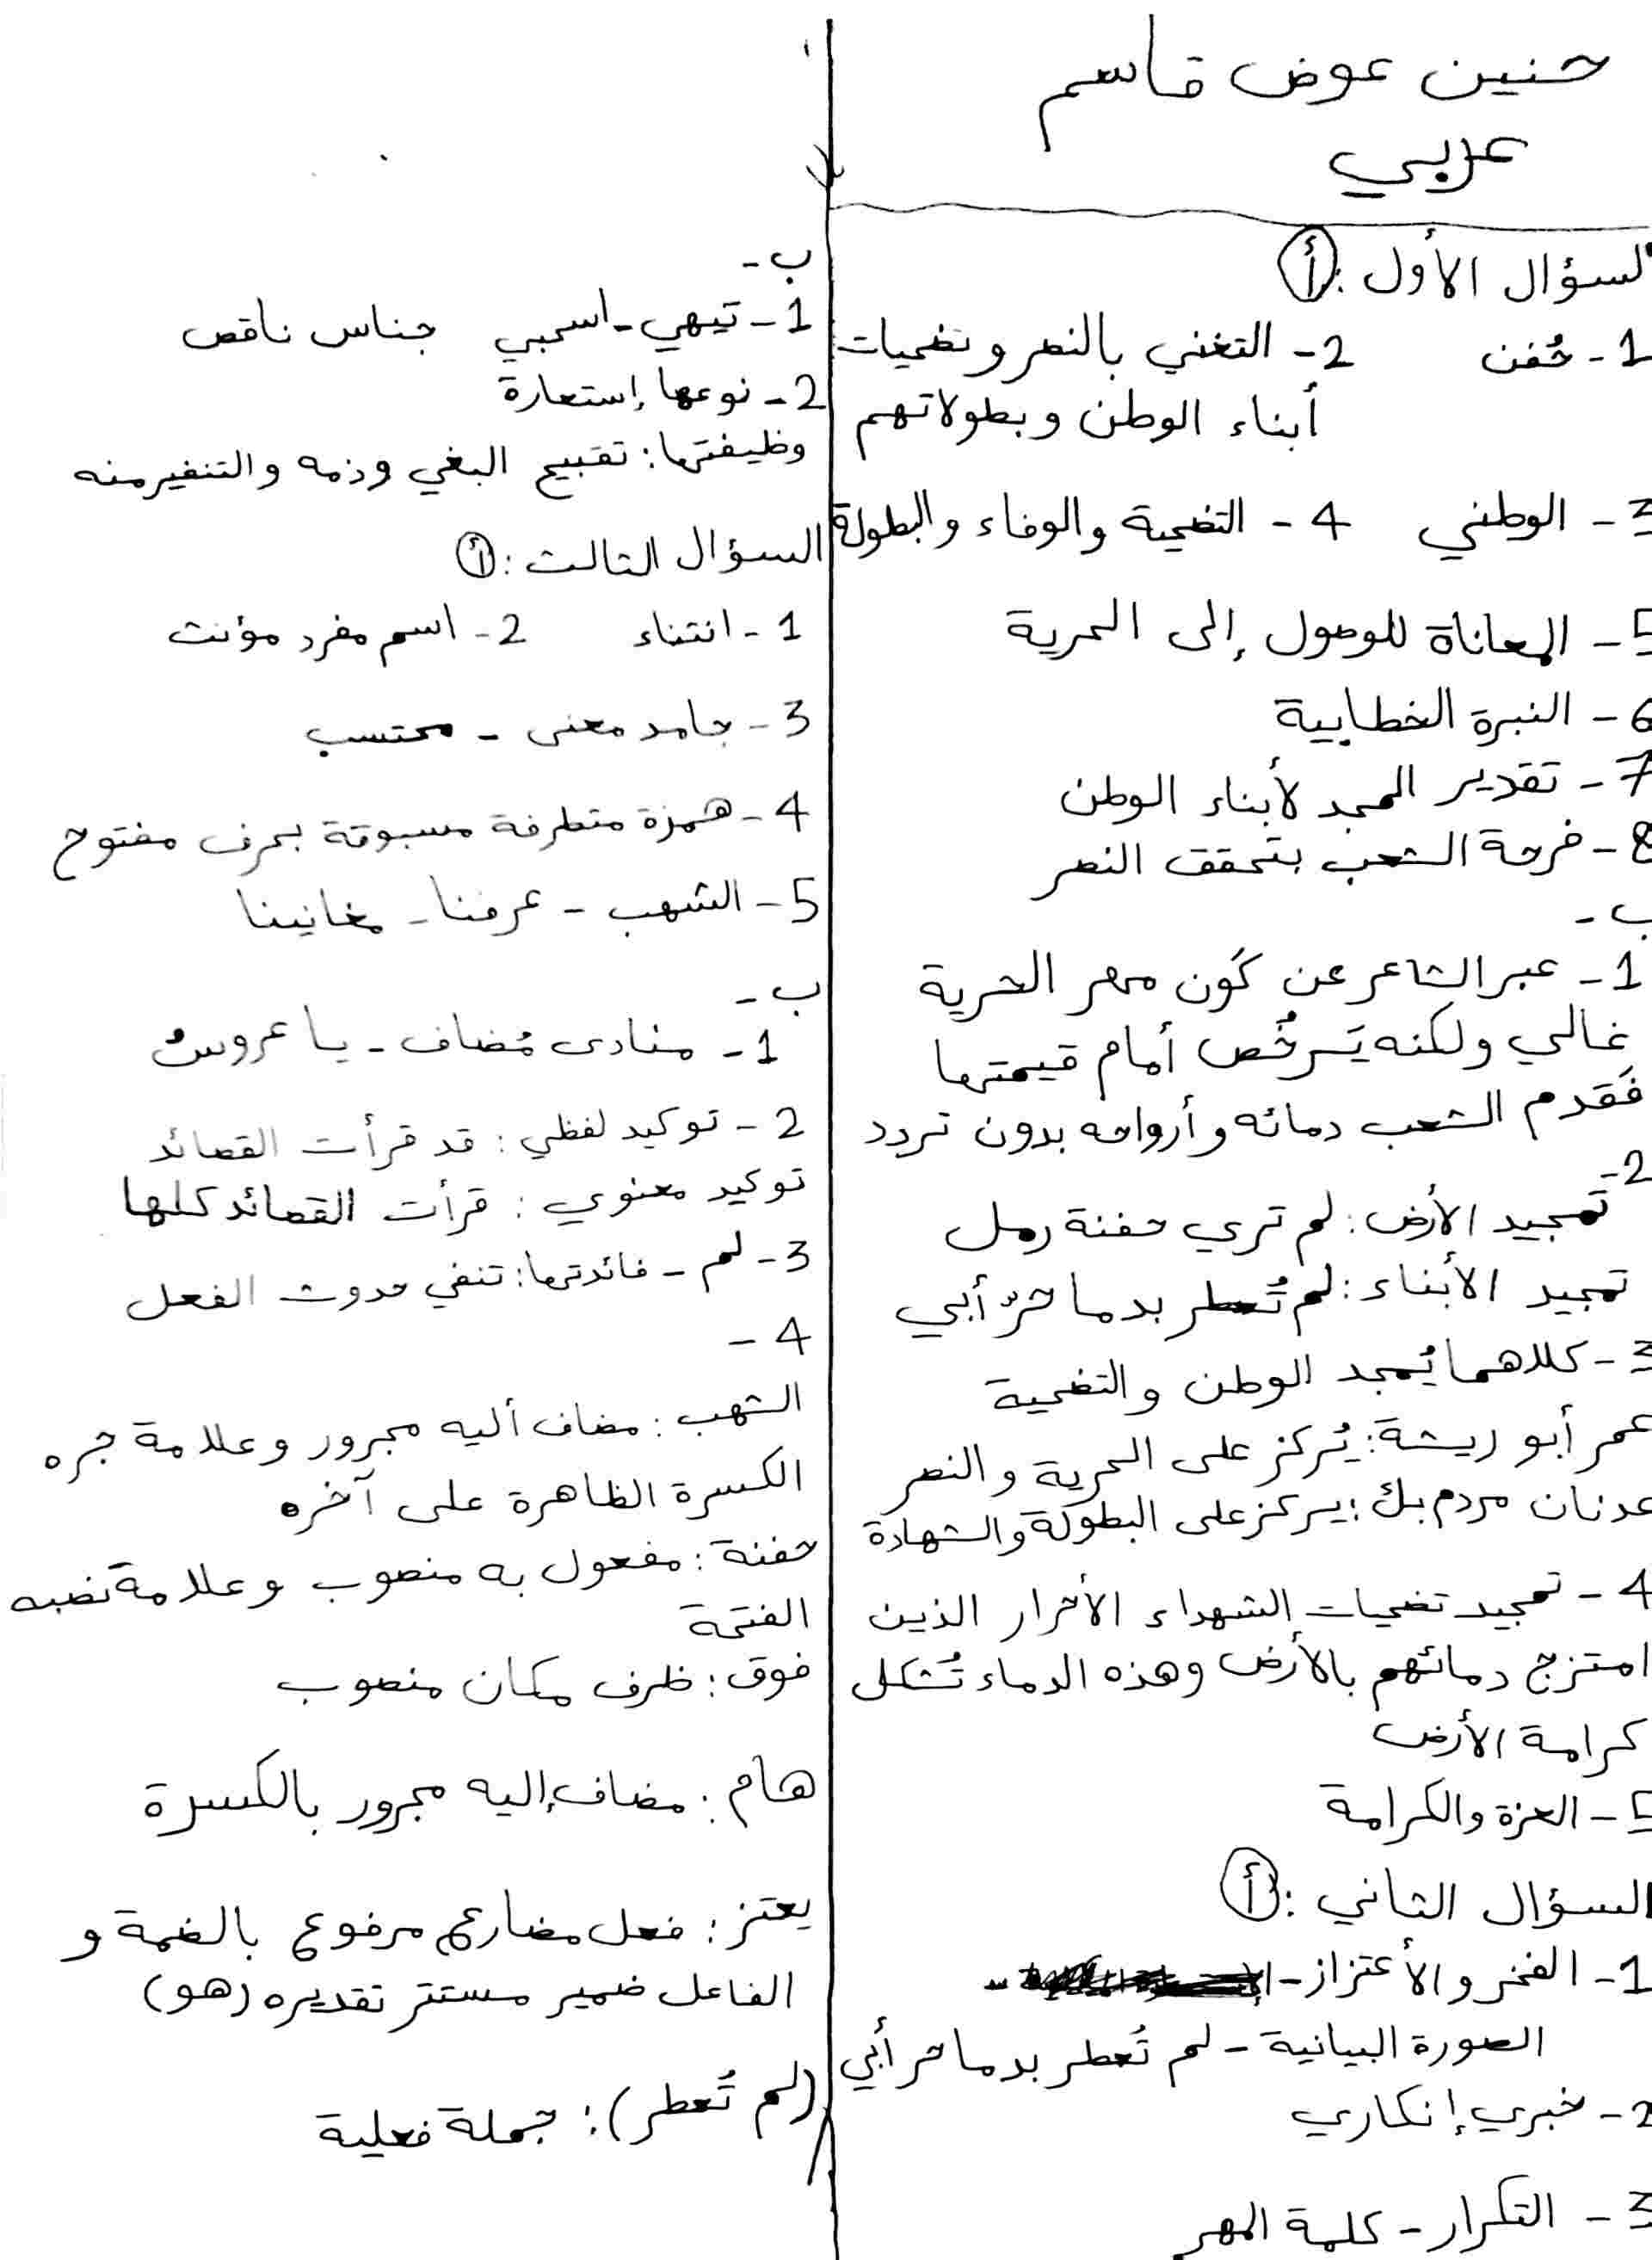 حنين عوض قاسم
عربي
لسؤال الأول: أ
1- حُفن 2- التغني بالنصر وتضحيات
أبناء الوطن وبطولاتهم
3- الوطني 4- التضحية والوفاء والبطولة
5- المعاناة للوصول إلى الحرية
6- النبرة الخطابية
7- تقدير المجد لأبناء الوطن
8- فرحة الشعب بتحقق النصر
ب -
1- عبر الشاعر عن كَون مهر الحرية
غالي ولكنه يَرخُص أمام قيمتها
فَقدم الشعب دمائه وأرواحه بدون تردد
2-
تمجيد الأرض: لم تري حفنة رمل
تمجيد الأبناء: لم تُعطر بدما حرّ أبي
3- كلاهما يُمجد الوطن والتضحية
عمر أبو ريشة: يُركز على الحرية والنصر
عدنان مردم بك: يركز على البطولة والشهادة
4- تمجيد تضحيات الشهداء الأحرار الذين
امتزج دمائهم بالأرض وهذه الدماء تُشكل
كرامة الأرض
5- العزة والكرامة
السؤال الثاني: أ
1- الفخر والأعتزاز -
الصورة البيانية - لم تُعطر بدما حر أبي
2- خبري إنكاري
3- التكرار - كلمة المهر
ب -
1- تيهي - اسحبي جناس ناقص
2- نوعها إستعارة
وظيفتها: تقبيح البغي وذمه والتنفير منه
السؤال الثالث: أ
1- انتناء 2- اسم مفرد مؤنث
3- جامد معنى - محتسب
4- همزة متطرفة مسبوقة بحرف مفتوح
5- الشهب - عرفنا - مغانينا
ب -
1- منادى مُضاف - يا عروسُ
2- توكيد لفظي: قد قرأت القصائد
توكيد معنوي: قرأت القصائد كلها
3- لم - فائدتها: تنفي حدوث الفعل
4 -
الشهب: مضاف أليه مجرور وعلامة جره
الكسرة الظاهرة على آخره
حفنة: مفعول به منصوب وعلامة نصبه
الفتحة
فوق: ظرف مكان منصوب
هام: مضاف إليه مجرور بالكسرة
يعتز: فعل مضارع مرفوع بالضمة و
الفاعل ضمير مستتر تقديره (هو)
(لم تُعطر): جملة فعلية